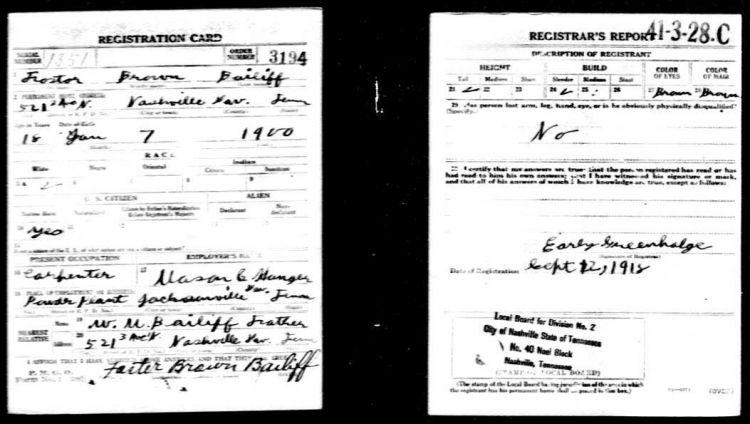 REGISTRATION CARD
SERIAL NUMBER 1351 ORDER NUMBER 3194
1 Foster Brown Bailiff
2 PERMANENT HOME ADDRESS:
521 3 Ave N. Nashville Dav. Tenn
Age in Years Date of Birth
18 Jan 7 1900
RACE
White Negro Oriental Indian
Citizen
U. S. CITIZEN ALIEN
Native Born Naturalized Citizen by Father's Naturalization Before Registrant's Majority Declarant Non-declarant
10 Yes
PRESENT OCCUPATION EMPLOYER'S NAME
16 Carpenter 17 Mason & Hanger
18 PLACE OF EMPLOYMENT OR BUSINESS:
Powder plant Jacksonville Dav. Tenn
NEAREST RELATIVE Name 19 W. M. Bailiff Father
Address 20 521 3 Ave N. Nashville Dav. Tenn
I AFFIRM THAT I HAVE VERIFIED ABOVE ANSWERS AND THAT THEY ARE TRUE
P. M. G. O.
Form No. 1
Foster Brown Bailiff
REGISTRAR'S REPORT 41-3-28.C
DESCRIPTION OF REGISTRANT
HEIGHT BUILD COLOR OF EYES COLOR OF HAIR
Tall Medium Short Slender Medium Stout
21 22 23 24 25 26 27 Brown 28 Brown
29 Has person lost arm, leg, hand, eye, or is he obviously physically disqualified?
(Specify.)
No
30 I certify that my answers are true; that the person registered has read or has
had read to him his own answers; that I have witnessed his signature or mark,
and that all of his answers of which I have knowledge are true, except as follows:
Early Greenhalge
(Signature of Registrar)
Date of Registration Sept 12, 1918
Local Board for Division No. 2
City of Nashville State of Tennessee
No. 40 Noel Block
Nashville, Tennessee
(STAMP OF LOCAL BOARD)
(The stamp of the Local Board having jurisdiction of the area in which
the registrant has his permanent home shall be placed in this box.)
(OVER)